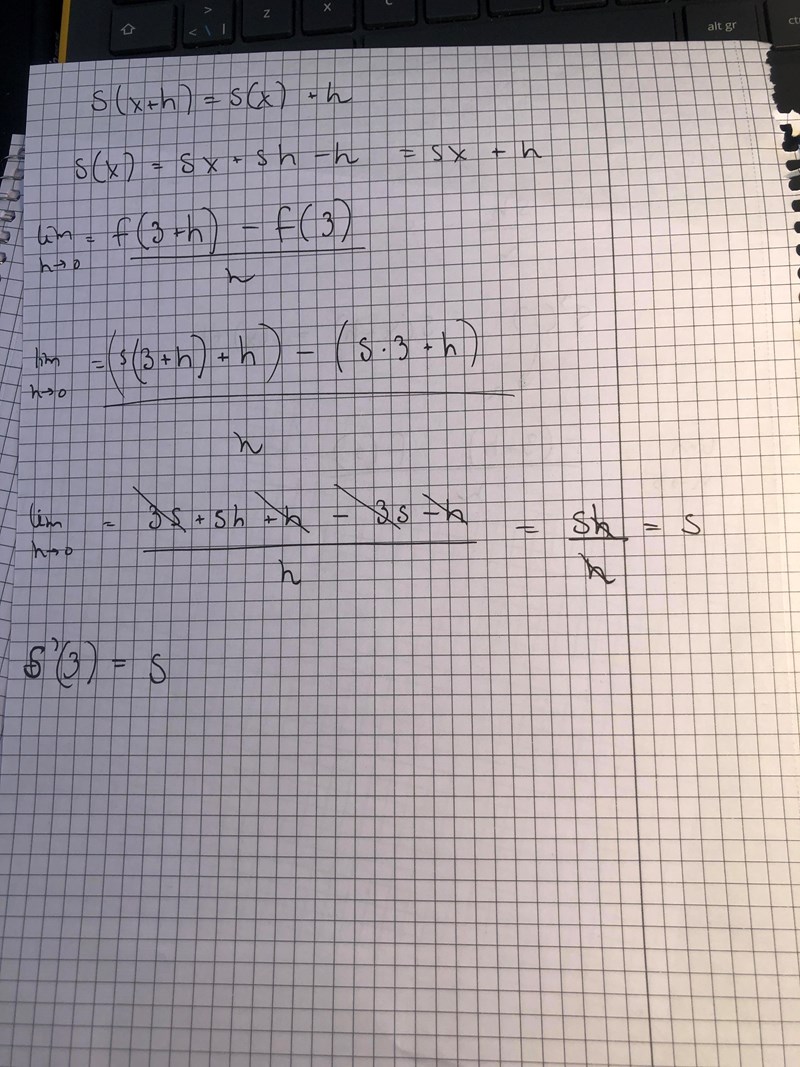 > < \ | z x alt gr
S(x+h) = S(x) + h
S(x) = Sx + Sh - h = Sx + h
lim h→0 = f(3+h) - f(3) / h
lim h→0 = (S(3+h) + h) - (S·3 + h) / h
lim h→0 = 3S + Sh + h - 3S - h / h = Sh / h = S
S'(3) = S